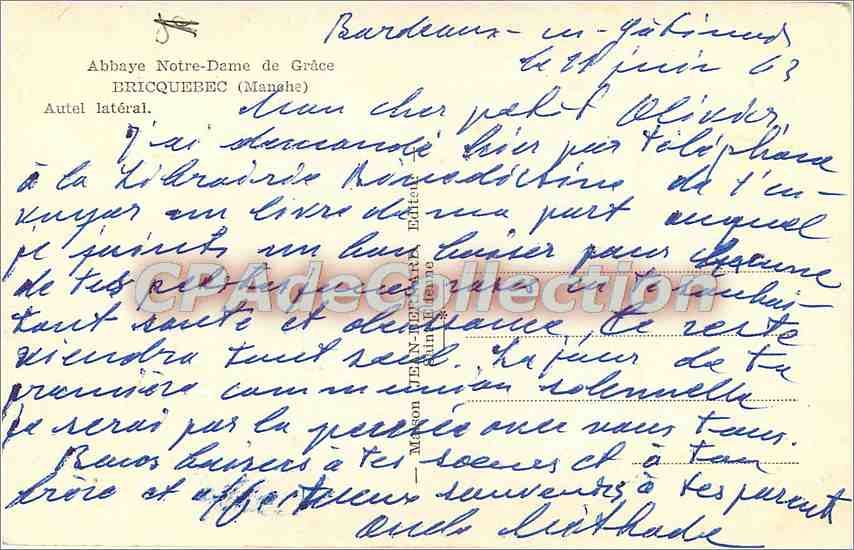 Bordeaux-en-Gâtinais
le 21 juin 63
Abbaye Notre-Dame de Grâce
BRICQUEBEC (Manche)
Autel latéral.
Mon cher petit Olivier,
J'ai demandé hier par téléphone
à la Librairie Bénédictine de t'en-
voyer un livre de ma part auquel
je joints un bon baiser pour chacune
de tes petites joues roses en te souhai-
tant santé et obéissance, le reste
viendra tout seul. Le jour de ta
première communion solennelle
je serai par la pensée avec vous tous.
Bons baisers à tes soeurs et à ton
frère et affectueux souvenirs à tes parents
Oncle
Maison JEAN-BERNARD, Editeur
Saint-Etienne
CPAdeCollection